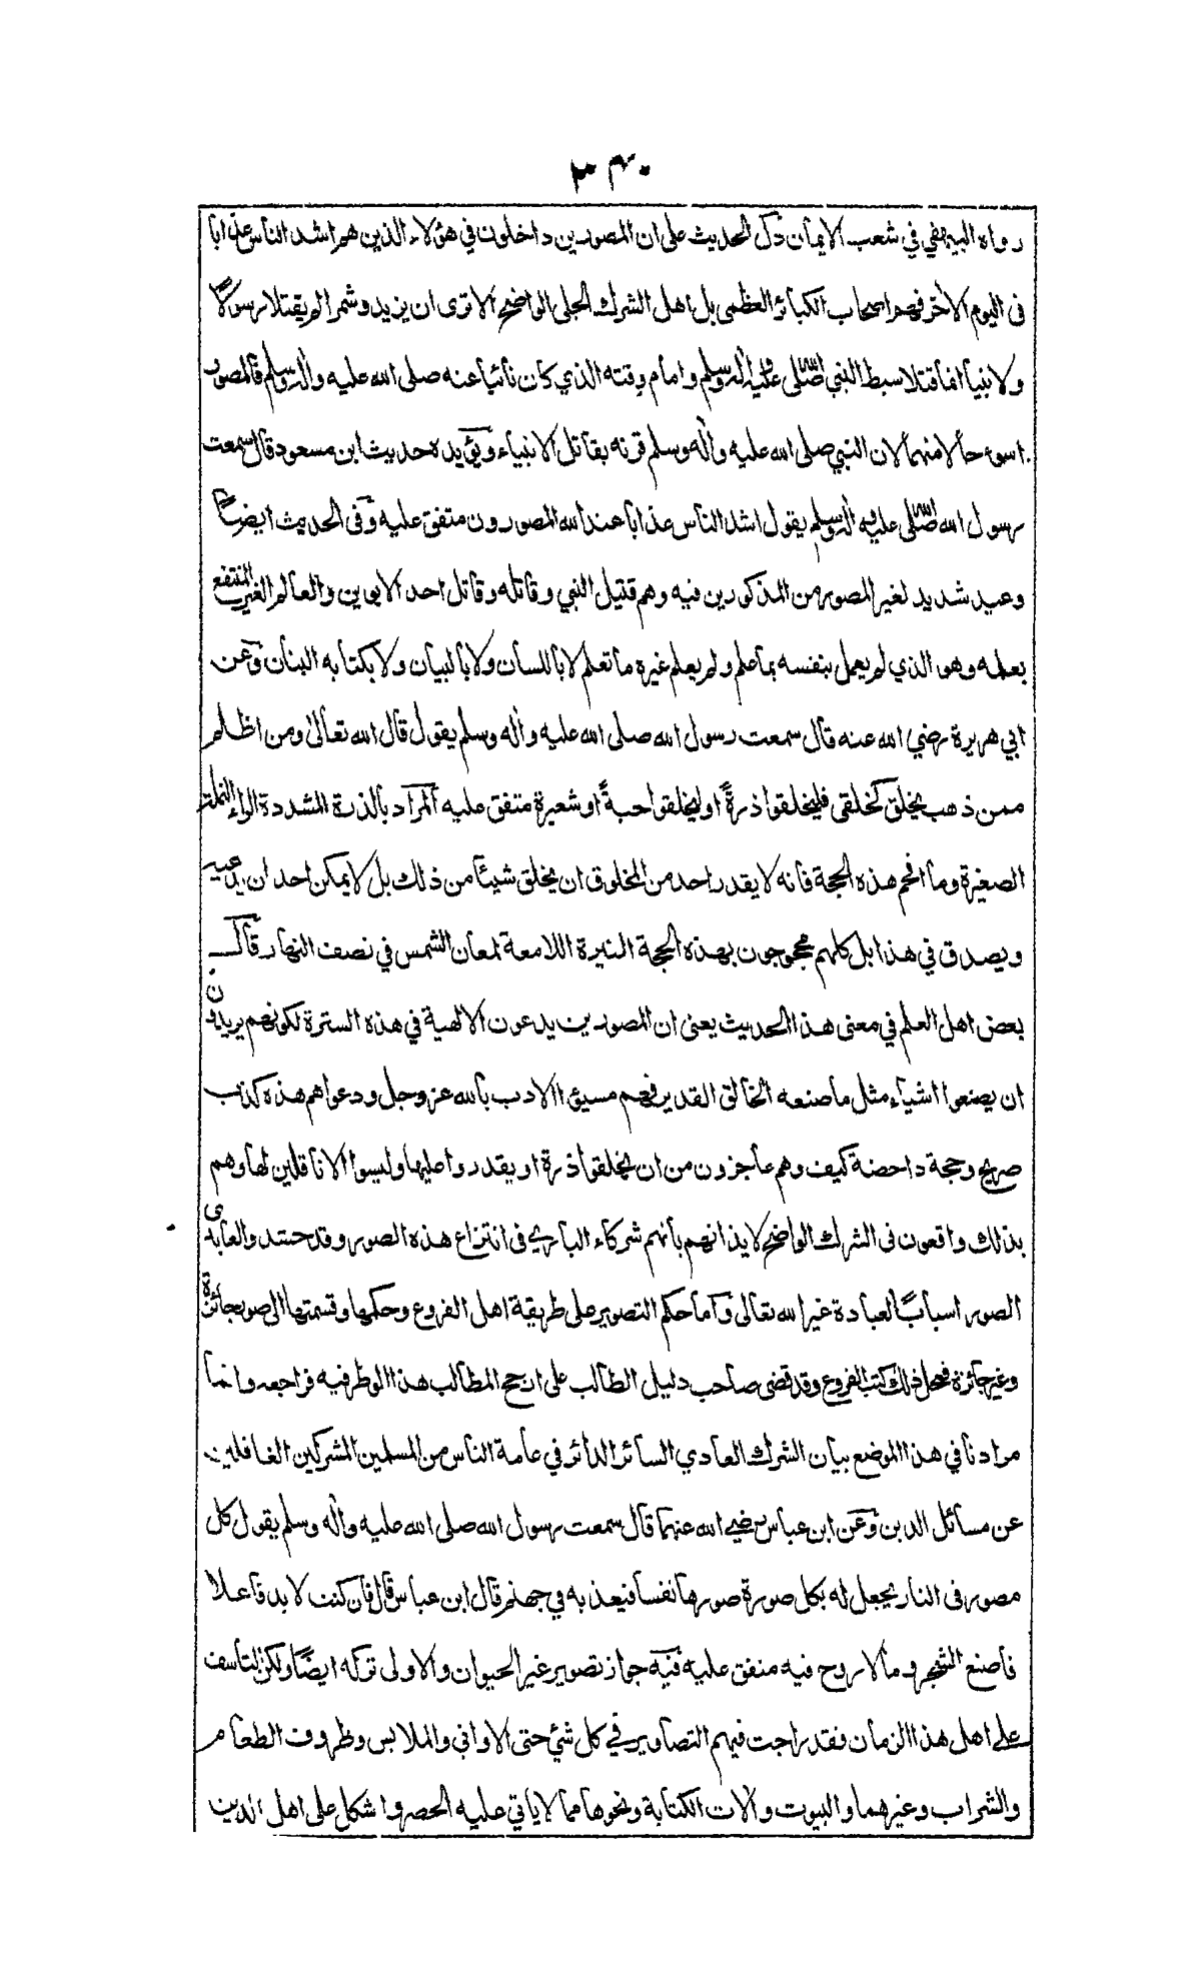 ٣٤٠
رواه البيهقي في شعب الايمان دل الحديث على ان المصورين داخلون في هؤلاء الذين هم اشد الناس عذابا
في اليوم الآخر فهم اصحاب الكبائر العظمى بل اهل الشرك الجلي الواضح الا ترى ان يزيد وشمرا لم يقتلا رسولا
ولا نبيا انما قتلا سبط النبي صلى الله عليه وآله وسلم وامام وقته الذي كان نائبا عنه صلى الله عليه وآله وسلم فالمصور
اسوء حالا منهما لان النبي صلى الله عليه وآله وسلم قرنه بقاتل الانبياء ويؤيده حديث ابن مسعود قال سمعت
رسول الله صلى الله عليه وآله وسلم يقول اشد الناس عذابا عند الله المصورون متفق عليه وفي الحديث ايضاً
وعيد شديد لغير المصور من المذكورين فيه وهم قتيل النبي وقاتله وقاتل احد الابوين والعالم الغير المنتفع
بعلمه وهو الذي لم يعمل بنفسه بما علم ولم يعلم غيره ما تعلم لا باللسان ولا بالبيان ولا بكتابه البنان وعن
ابي هريرة رضي الله عنه قال سمعت رسول الله صلى الله عليه وآله وسلم يقول قال الله تعالى ومن اظلم
ممن ذهب يخلق كخلقي فليخلقوا ذرةً او ليخلقوا حبةً او شعيرة متفق عليه المراد بالذرة المشددة الراء النملة
الصغيرة وما افحم هذه الحجة فانه لا يقدر احد من المخلوق ان يخلق شيئا من ذلك بل لا يمكن احد ان يدعيه
ويصدق في هذا بل كلهم محجوجون بهذه الحجة النيرة اللامعة لمعان الشمس في نصف النهار قال
بعض اهل العلم في معنى هذا الحديث يعني ان المصورين يدعون الالهية في هذه السترة لكونهم يريدون
ان يصنعوا اشياء مثل ما صنعه الخالق القدير فهم مسيئ الادب بالله عز وجل ودعواهم هذه كذب
صريح وحجة داحضة كيف وهم عاجزون من ان يخلقوا ذرة او يقدروا عليها وليسوا الا ناقلين لها وهم
بذلك واقعون في الشرك الواضح لايذانهم بانهم شركاء الباري في انتزاع هذه الصور وقد حشد والعابدى
الصور اسباباً لعبادة غير الله تعالى واما حكم التصوير على طريقة اهل الفروع وحكمها وقسمتها الى صور جائزة
وغير جائزة فمحل ذلك كتب الفروع وقد قضى صاحب دليل الطالب على ارجح المطالب هذا الوطر فيه فراجعه وانما
مرادنا في هذا الموضع بيان الشرك العادي السائر الدائر في عامة الناس من المسلمين المشركين الغافلين
عن مسائل الدين وعن ابن عباس رضي الله عنهما قال سمعت رسول الله صلى الله عليه وآله وسلم يقول كل
مصور في النار يجعل له بكل صورة صورها نفسا فيعذبه في جهنم قال ابن عباس قال فان كنت لا بد فاعلا
فاصنع الشجر وما لا روح فيه متفق عليه فيه جواز تصوير غير الحيوان والاولى تركه ايضًا ولكن التاسف
على اهل هذا الزمان فقد راجت فيهم التصاوير في كل شيئ حتى الاواني والملابس وظروف الطعام
والشراب وغيرهما والبيوت والات الكتابة ونحوها مما لا ياتي عليه الحصر واشكل على اهل الدين